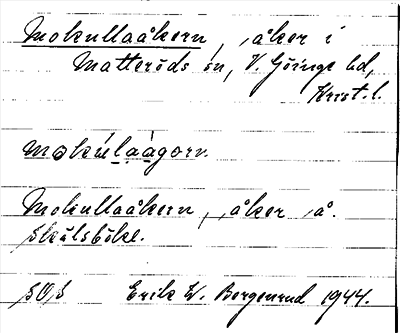 Mokullaåkern, åker i
Matteröds sn, V. Göinge hd,
Krist. l.
mokúlaàgorn.
Mokullaåkern, åker å.
Skälsböke.
SOS Erik W. Bergenrud 1944.